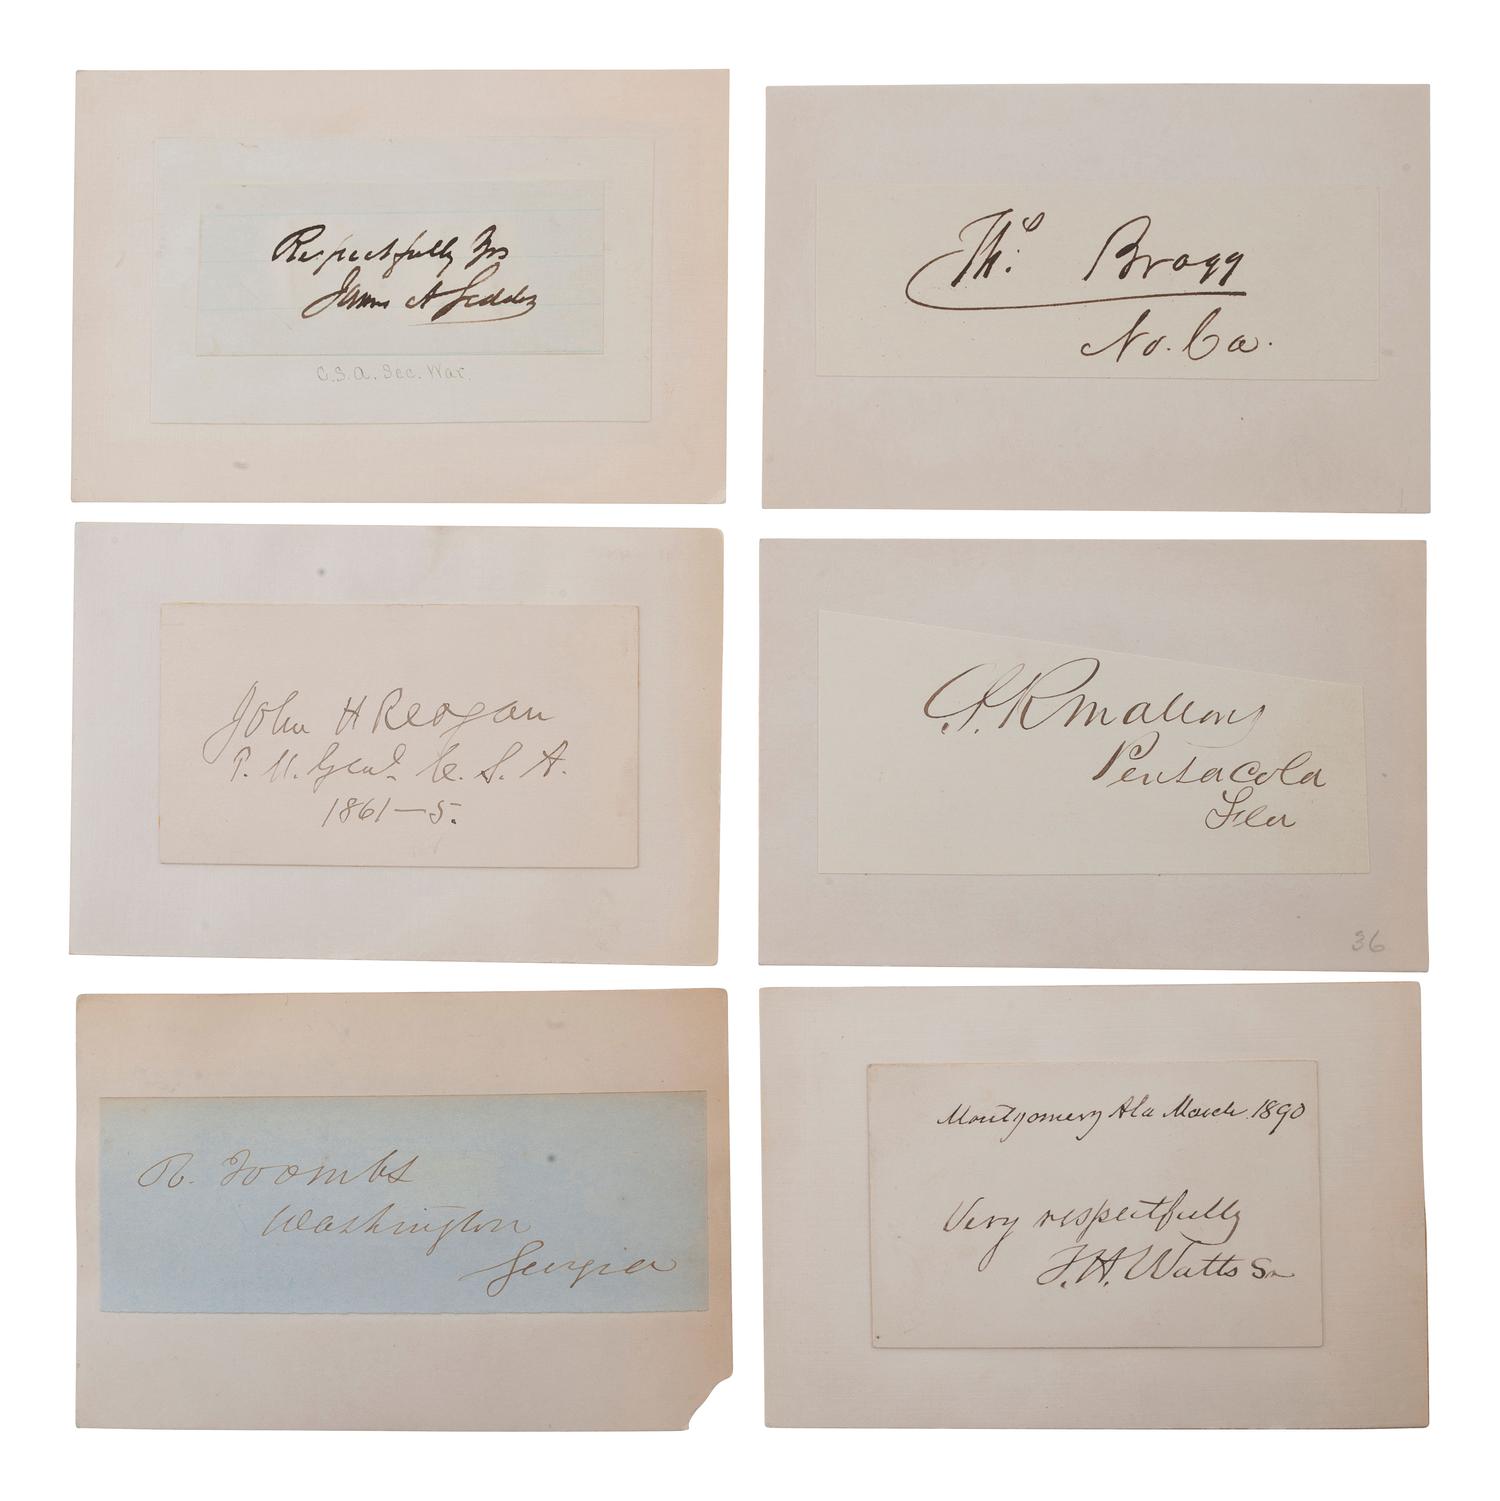 Respectfully Yrs
James A Seddon
C.S.A. Sec. War.
Ths. Bragg
No. Ca.
John H Reagan
P. M. Genl. C. S. A.
1861–5.
S. R Mallory
Pensacola
Flor
36
R. Toombs
Washington
Georgia
Montgomery Ala March 1890
Very respectfully
T. H. Watts Sr